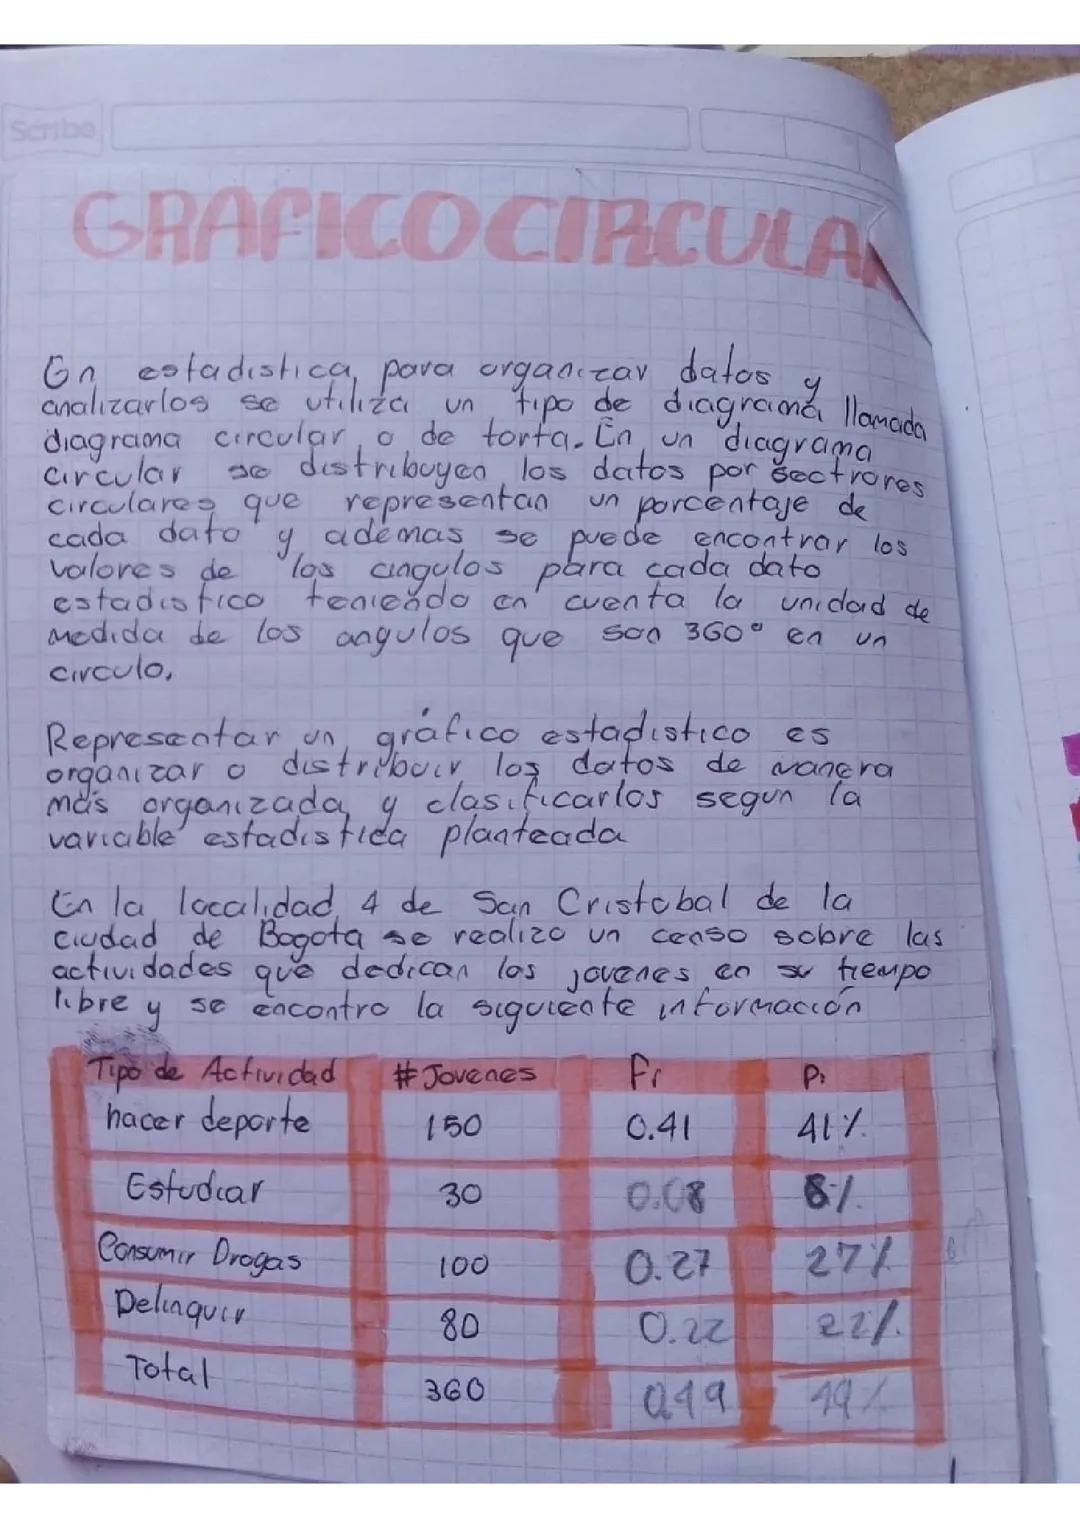 Scribe
GRAFICO CIRCULAR
En estadistica, para organizar datos y
analizarlos se utiliza un tipo de diagrama llamada
diagrama circular, o de torta. En un diagrama
circular se distribuyen los datos por sectrores
circulares que representan un porcentaje de
cada dato y ademas se puede encontrar los
valores de los angulos para cada dato
estadistico teniendo en cuenta la unidad de
medida de los angulos que son 360° en un
circulo.
Representar un gráfico estadistico es
organizar o distribuir los datos de manera
más organizada y clasificarlos segun la
variable estadistica planteada
En la localidad 4 de San Cristobal de la
ciudad de Bogota se realizo un censo sobre las
actividades que dedican los jovenes en su tiempo
libre y se encontro la siguiente información
Tipo de Actividad # Jovenes Fr Pi
hacer deporte 150 0.41 41%
Estudiar 30 0.08 8%
Consumir Drogas 100 0.27 27%
Delinquir 80 0.22 22%
Total 360